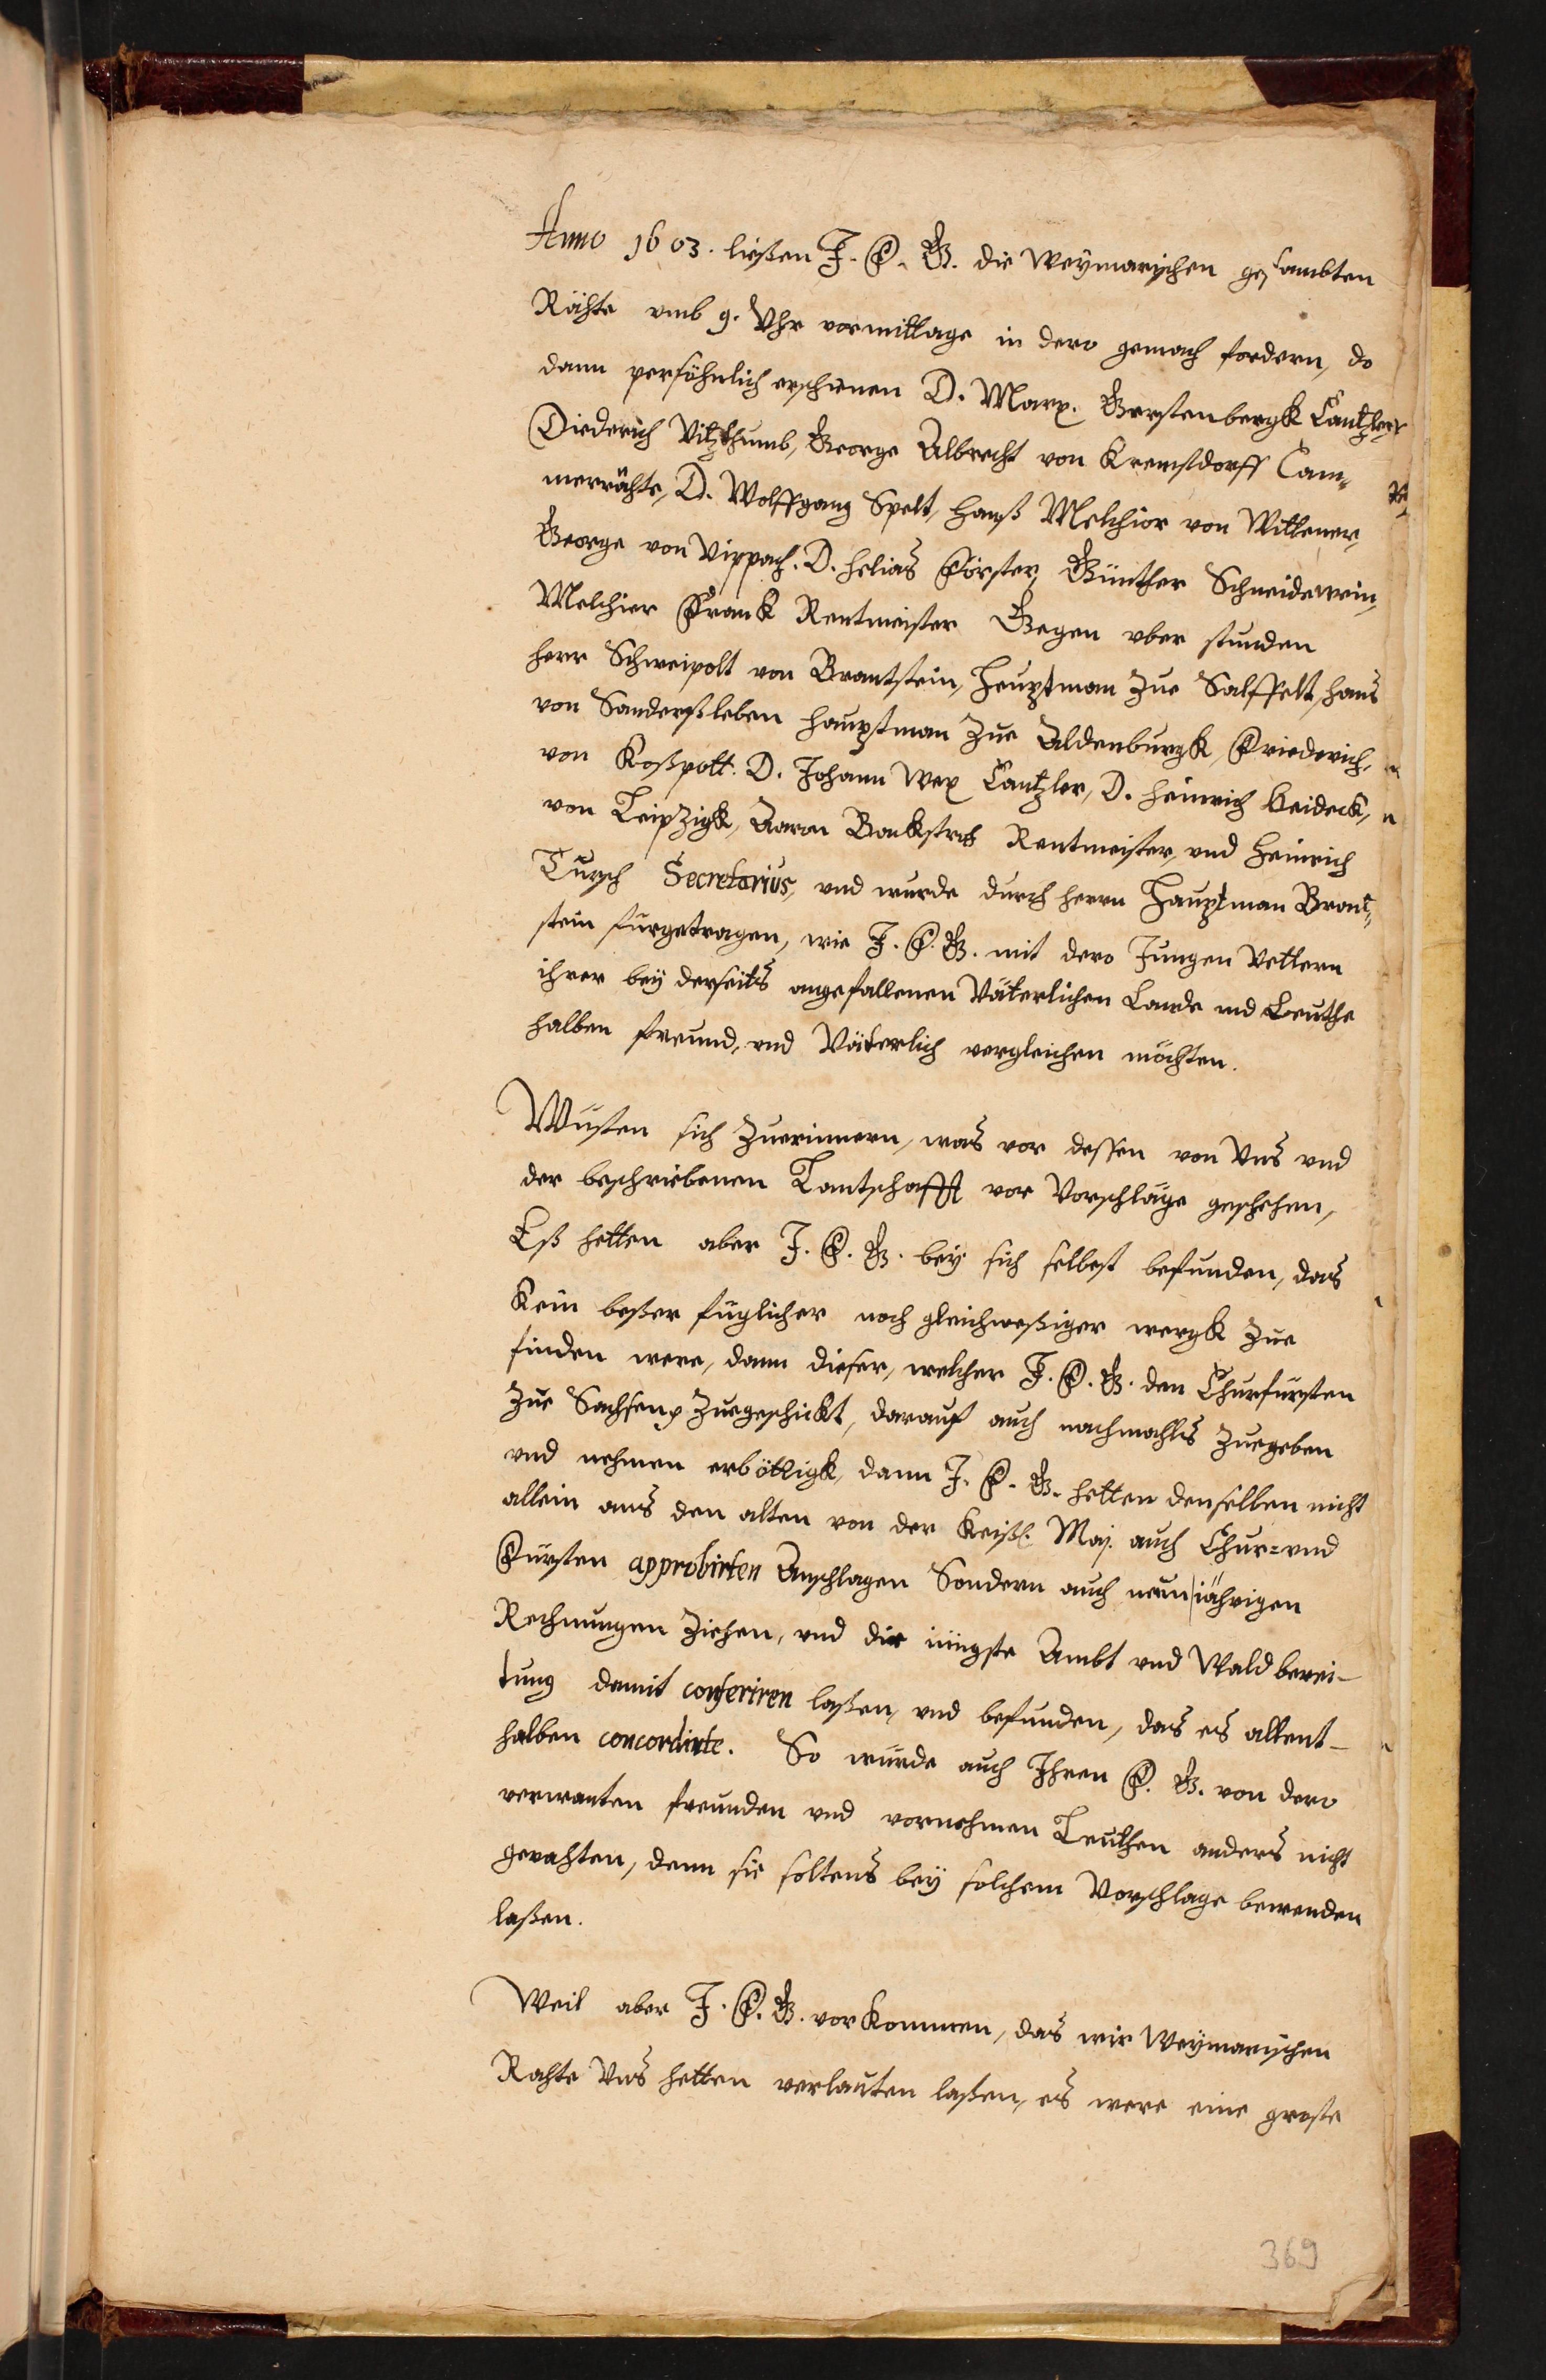 Anno 1603. ließen F. F. G. die Weymarischen gesambten
Räthe vmb 9. Vhr vormittage in dero gemach fordern, do
dann persöhnlich erschienen D. Marx. Gerstenbergk Cantzler
Diederich Vitzthumb, George Albrecht von Kremstdorff Cam„
merräthe, D. Wolffgang Spelt, Hanß Melchior von Wittener,
George von Vippach. D. Helias Förster, Günther Schneidewein,
Melchier Frank Rentmeister Gegen vber stunden
Herr Schweipolt von Brantstein, Heuptman Zue Salffelt, Hans
von Sanderßleben Hauptman Zue Aldenburgk, Friederich
von Koßpott. D. Johann Wex Cantzler, D. Heinrich Heideck,
von Leipzigk, Aaron Rentmeister, vnd Heinrich
Tursch Secretarius, vnd wurde durch Herrn Hauptman Brant„
stein fürgetragen, wie F. F. G. mit dero Jungen Vettern
ihrer beyderseits angefallenen Väterlichen Lande vnd Leuthe
halben freund, vnd Väterlich vergleichen möchten.
Wüsten sich Zuerinnern, was vor dessen von Vns vnd
der beschriebenen Lantschafft vor Vorschläge geschehen,
Eß hetten aber F. F. G. bey sich selbest befunden, das
Kein beßer füglicher noch gleichmeßiger wergk Zue
finden were, dann dieser, welcher F. F. G. den Churfürsten
Zue Sachsen Zuegeschickt, darauf auch nachmahls Zuegeben
vnd nehmen erbötligk, dann F. F. G. hetten denselben nicht
allein aus den alten von der Keißl. Maj. auch Chur=vnd
Fürsten approbirten Anschlagen Sondern auch neun jährigen
Rechnungen Ziehen, vnd die jüngste Ambt vnd Waldberei-
tung damit conferiren laßen, vnd befunden, das es allent-
halben concordirte. So würde auch Ihren F. G. von dero
verwanten freunden vnd vornehmen Leuthen anders nicht
gerahten, denn sie soltens bey solchem Vorschlage bewenden
laßen.
Weil aber F. F. G. vorkommen, das wir Weymarischen
Rahte Vns hetten verlauten laßen, es were eine große
369